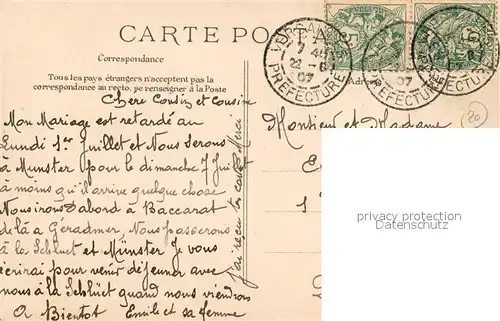 CARTE POSTALE
Correspondance
Tous les pays étrangers n'acceptent pas la
correspondance au recto, se renseigner à la Poste
Adre
VERSAILLES
7 45
22 -6
07
PREFECTURE
07
PREFECTURE
PREFECTURE
20
Chere Cousin et cousine
Mon Mariage est retardé au
Lundi 1er Juillet et Nous serons
à Munster pour le dimanche 7 Juillet
à moins qu'il arrive quelque chose
Nous irons d'abord à Baccarat
de là à Géradmer, Nous passerons
à la Schlüct et Münster Je vous
écrirai pour venir déjeuner avec
nous à la Schlüct quand nous viendrons
A Bientot Emile et sa femme
j'ai reçu ta carte Merci
Monsieur et Madame
privacy protection
Datenschutz